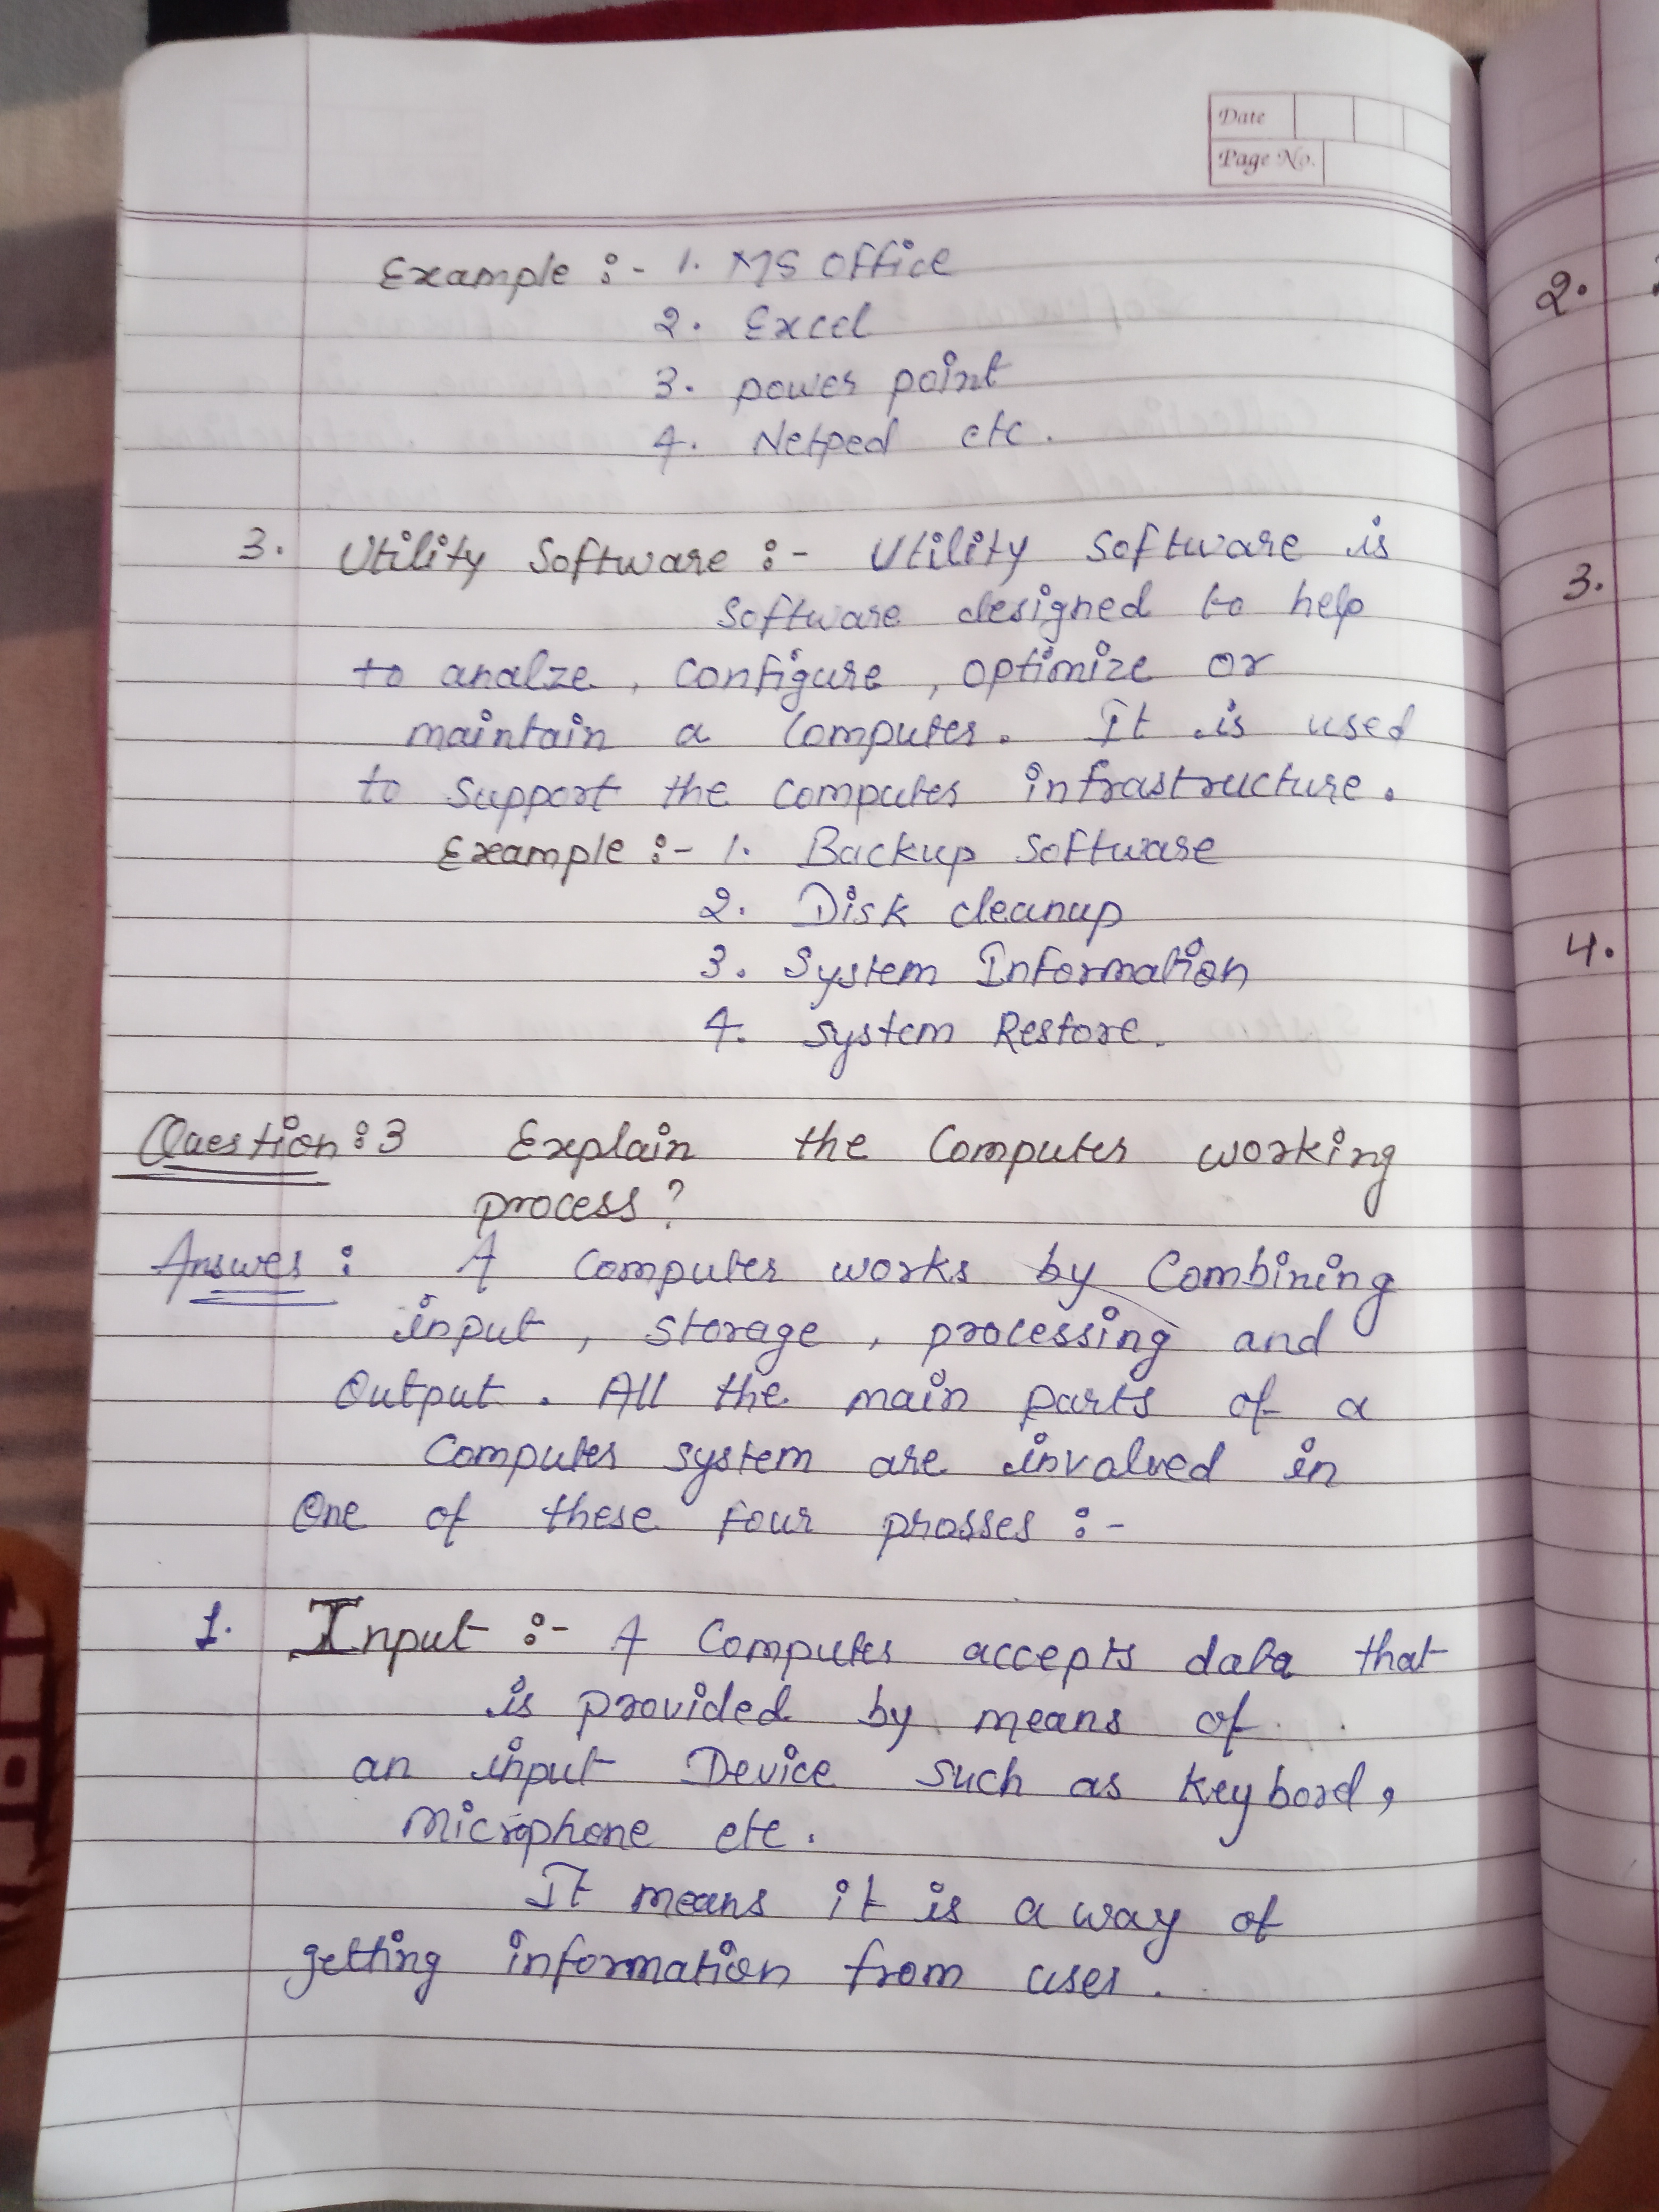 Date
Page No.
Example :- 1. MS Office
2. Excel
3. power point
4. Netped etc.
3. Utility Software :- Utility Software is
Software designed to help
to analze, Configure, optimize or
maintain a Computer. It is used
to Support the Computer infrastructure.
Example :- 1. Backup Software
2. Disk cleanup
3. System Information
4. System Restore.
Question:3 Explain the Computer working
process?
Answer: A Computer works by Combining
input, Storage, processing and
Output. All the main parts of a
Computer system are involved in
One of these four prosses :-
1. Input :- A Computer accepts data that
is provided by means of
an input Device Such as Keybord,
Microphone etc.
It means it is a way of
getting information from user.
2.
3.
4.